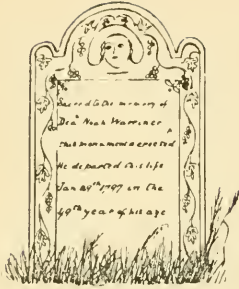 Sacred to the memory of
Dea<sup>n</sup> Noah Warriner
this monument is erected
He departed this life
Jan 29th 1797 in the
49th year of his age